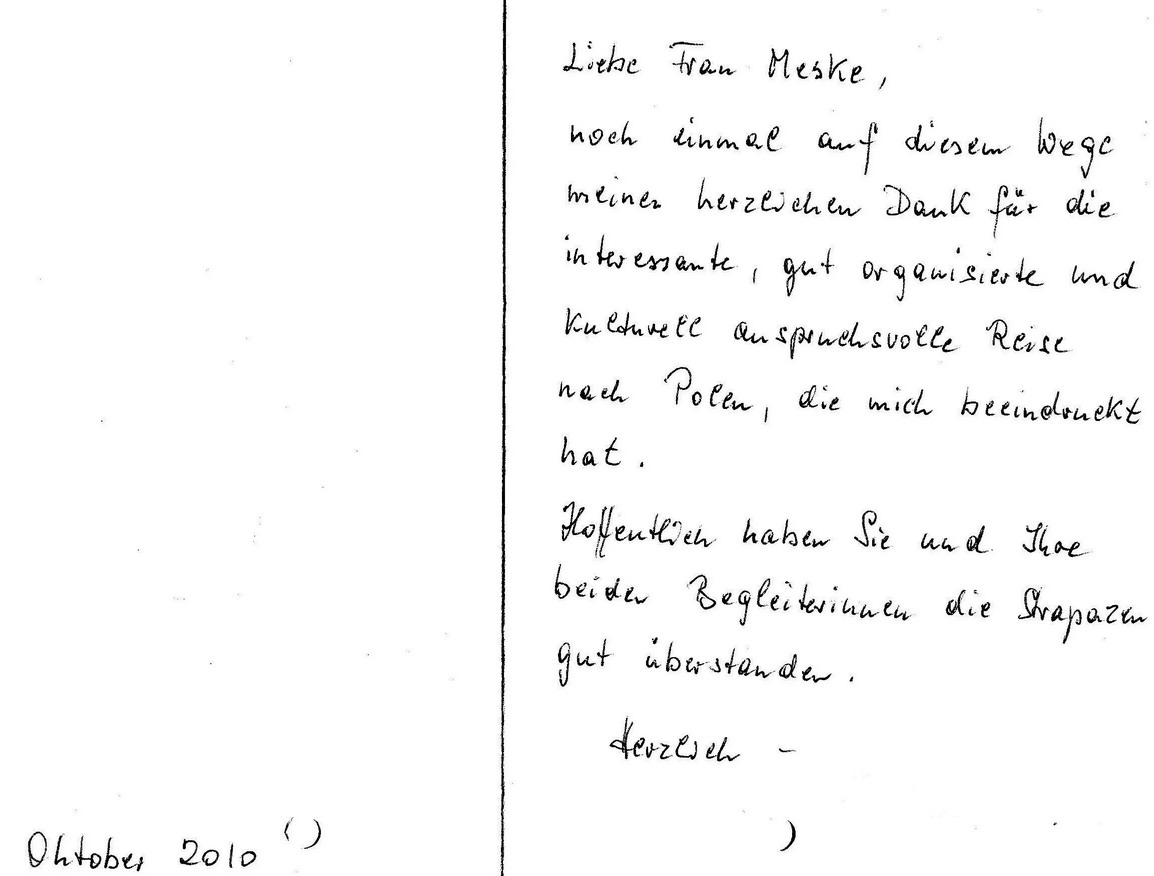 Liebe Frau Meske,
noch einmal auf diesem Wege
meinen herzlichen Dank für die
interessante, gut organisierte und
kulturell anspruchsvolle Reise
nach Polen, die mich beeindruckt
hat.
Hoffentlich haben Sie und Ihre
beiden Begleiterinnen die Strapazen
gut überstanden.
Herzlich –
)
Oktober 2010 ( )